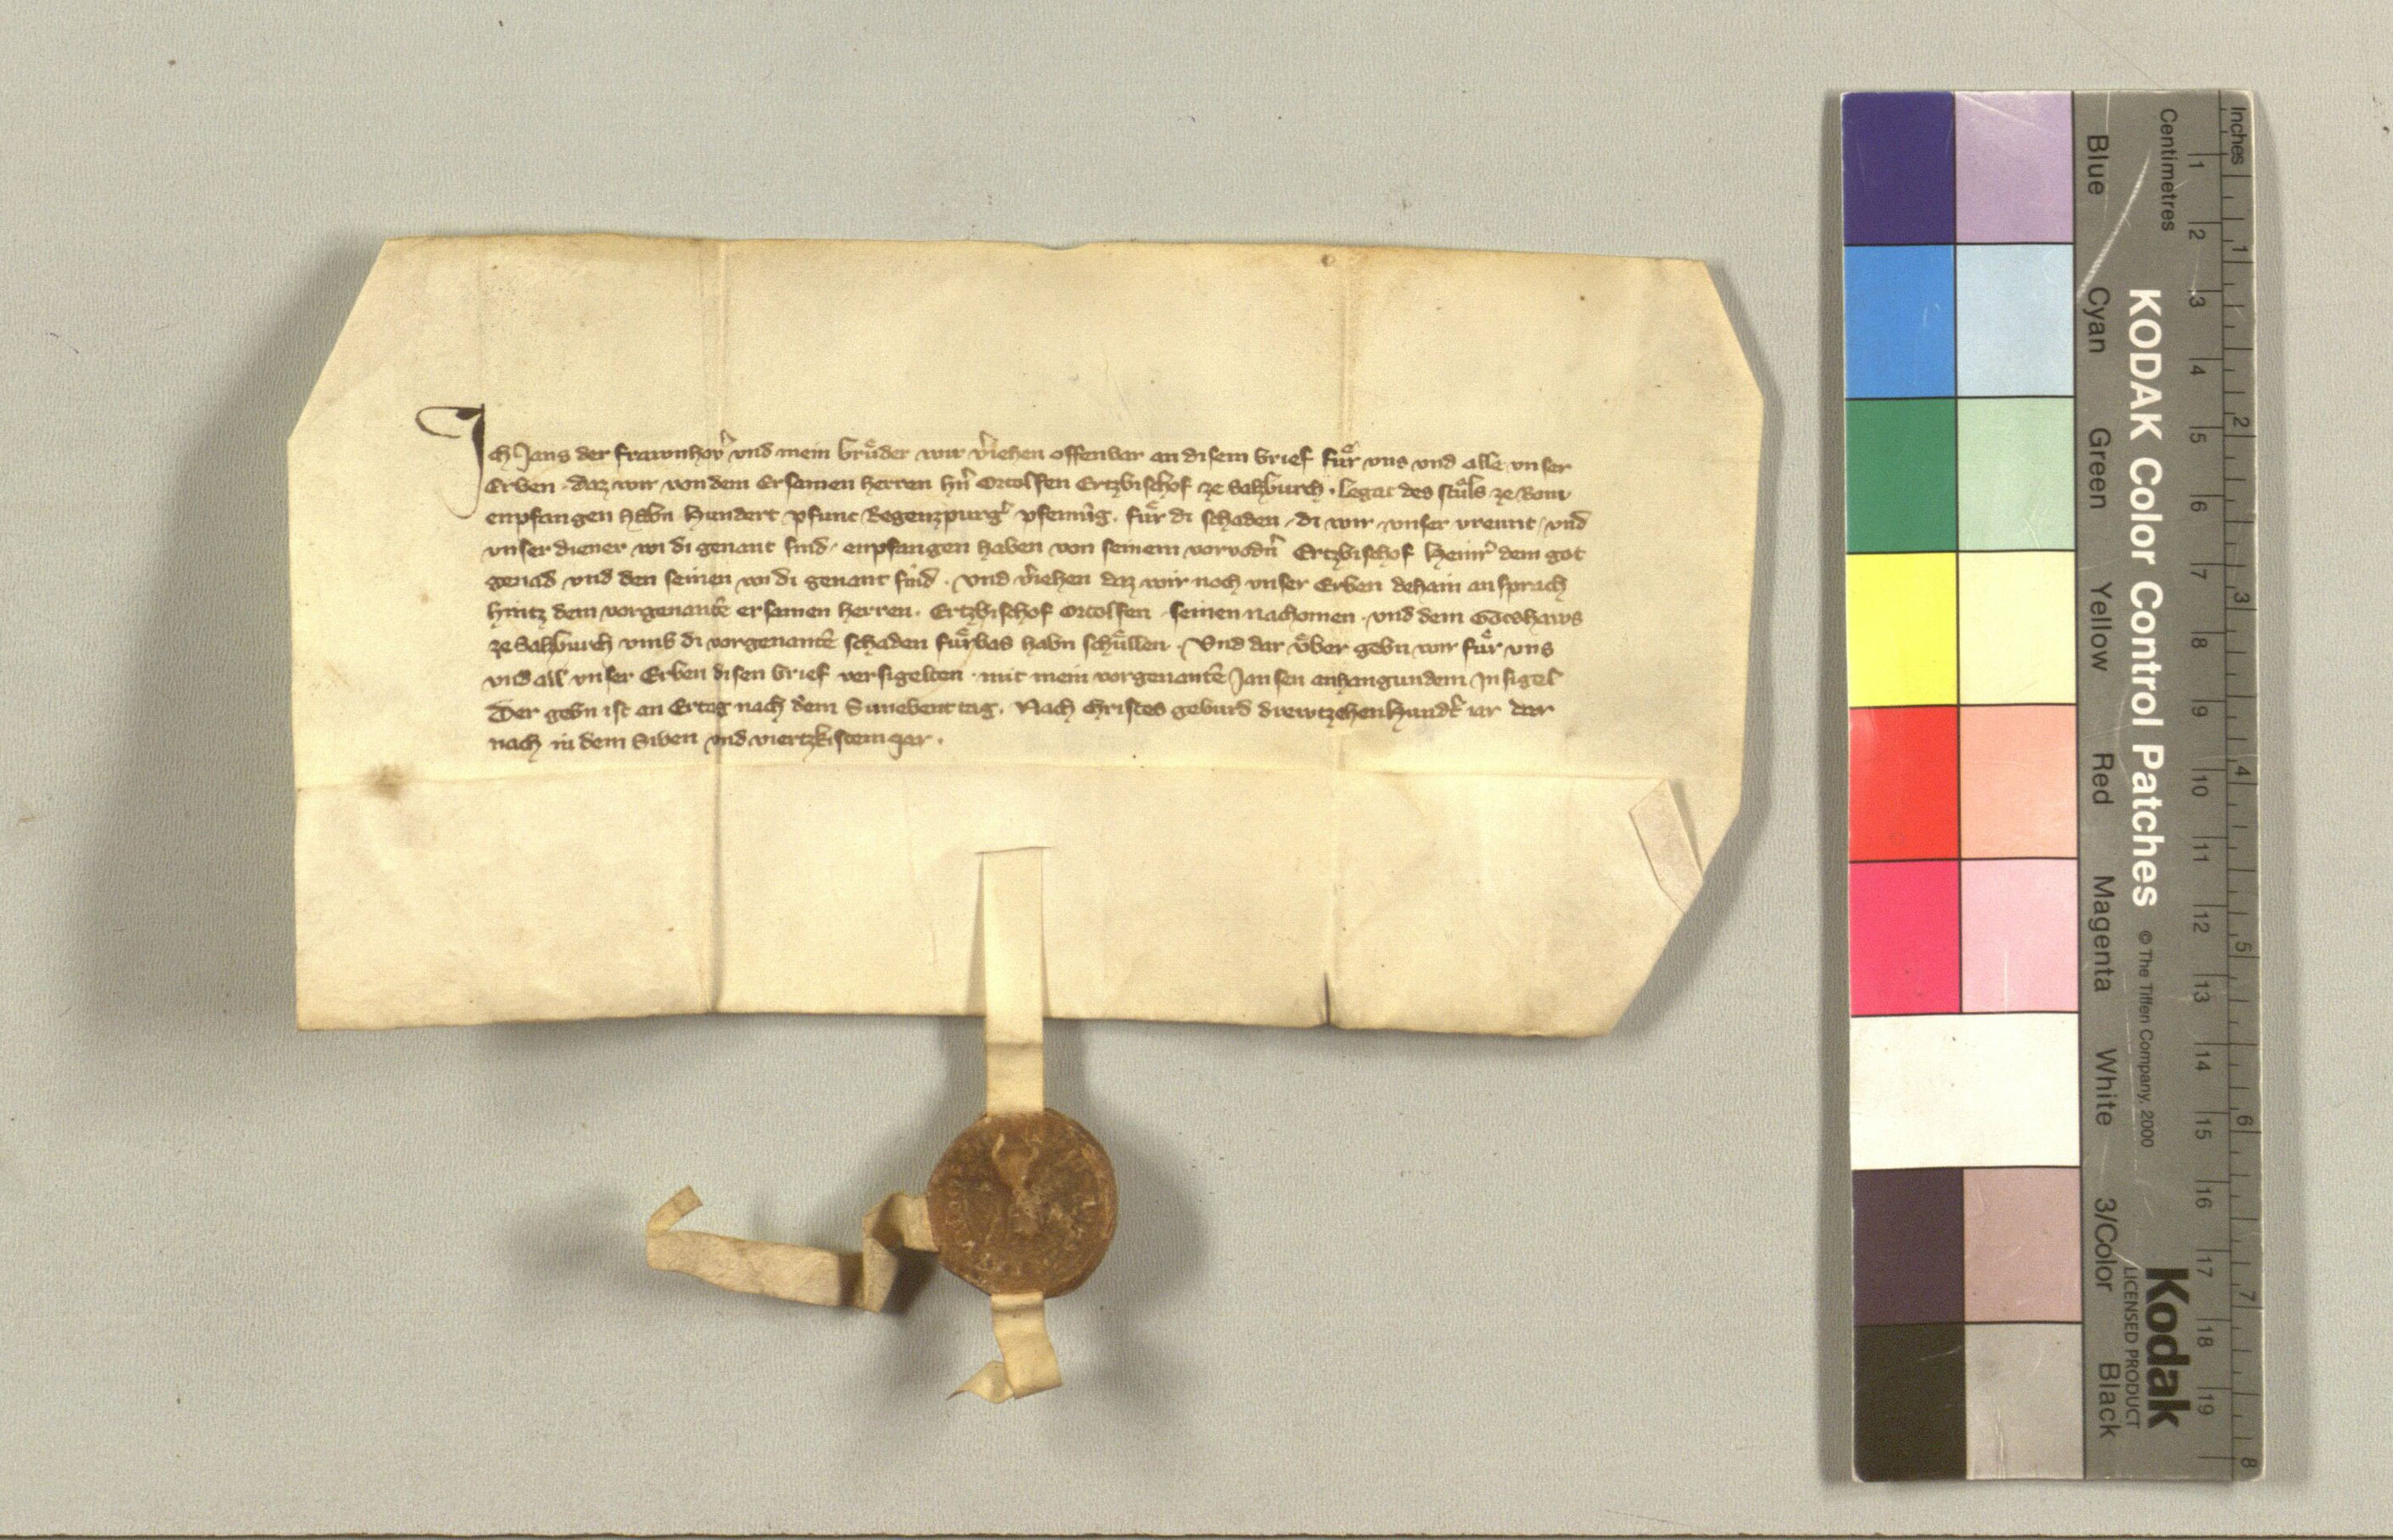 Ich Jans der frawnhov̾ vnd mein bruͤder wir v̾iehen offenbar an disem brief fuͤr vns vnd alle vnser
Erben · daz wir von dem Ersamen herren hn̄ Ortolffen Ertzbischof ze Salzburch · legat des stuͤls ze Rom
enpfangen habn Hundert pfunt Regenzpurg̾ pfennīg · fuͤr di schaden · di wir · vnser vreunt · vnd
vnser diener wi di genant sind · enpfangen haben von seinem vorvodn̄ Ertzbischof Heinr̾ dem got
genad vnd den seinen wi di genant sind · vnd v̾iehen daz wir noch vnser Erben dehain ansprach
hintz dem vorgenantē ersamen herren · Ertzbischof Ortolffen · seinen nachomen · vnd dem Gotshaws
ze Salzburch vmb di vorgenantē schaden fuͤrbas habn schuͤllen · Vnd dar vͤber gebn wir fuͤr vns
vnd all vnser Erben disen brief versigelten · mit mein vorgenantē Jansen anhangundem Insigel
Der gebn ist an Ertag nach dem Sunebent tag · Nach Christes geburd drewtzehenhundt̾ iar dar
nach in dem Siben vnd viertzkistem jar ·
Inches
Centimetres
1 2 3 4 5 6 7 8 9 10 11 12 13 14 15 16 17 18 19
1 2 3 4 5 6 7 8
KODAK Color Control Patches © The Tiffen Company, 2000
Kodak
LICENSED PRODUCT
Blue Cyan Green Yellow Red Magenta White 3/Color Black